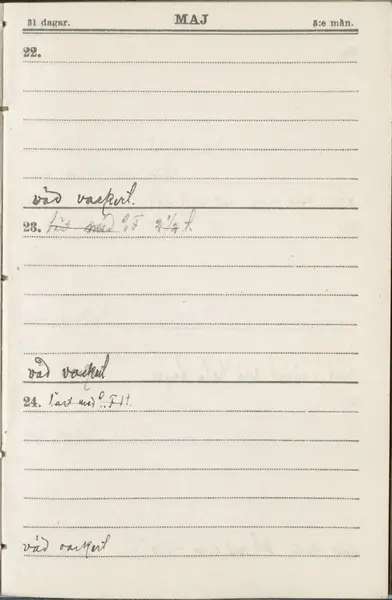 31 dagar. MAJ 5:e mån.
22.
väd vackert.
23. 2 1/2 t.
väd vackert
24.
väd vackert